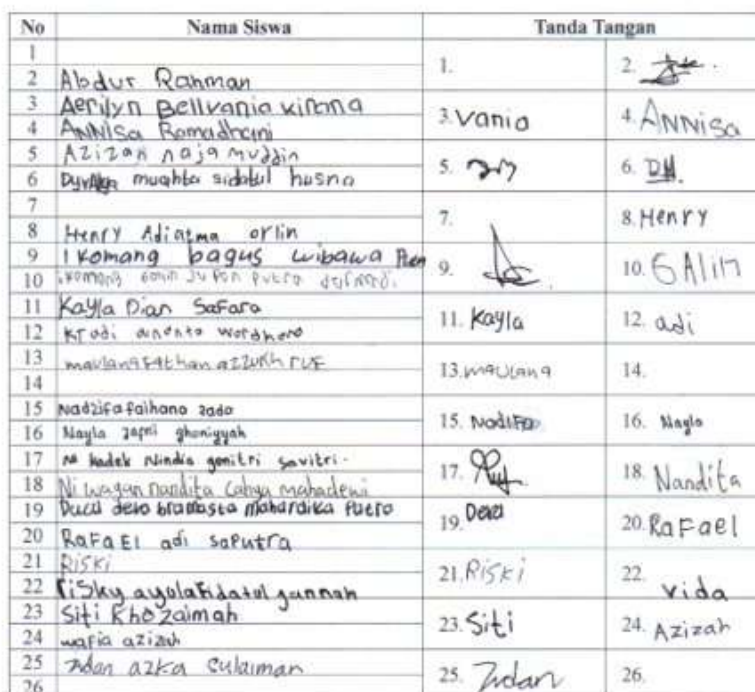 No Nama Siswa Tanda Tangan
1 1. 2.
2 Abdur Rahman
3 Aerilyn Bellvania kirana 3. Vania 4. ANNISa
4 ANNISa Ramadhani
5 Azizan naja muddin 5. 6. DH.
6 muqhta sidatul husna
7 7. 8. Henry
8 Henry Adiatma orlin
9 I komang bagus wibawa 9. 10. GAlih
10 ikomang putra
11 Kayla Dian Safara 11. Kayla 12. adi
12 Krodi ananta wardhana
13 maulana fathan 13. maulana 14.
14
15 Nadzifa faihana zada 15. Nadifa 16. Nayla
16 Nayla zapni ghoniyyah
17 Ni kadek Nindia genitri savitri. 17. 18. Nandita
18 Ni wayan nandita cahya mahadewi
19 deva bramasta mahardika Putro 19. Deva 20. RaFael
20 RaFaEl adi saPutra
21 RiSKi 21. RiSKi 22. vida
22 riSky ayula fidatul jannah
23 Siti Khozaimah 23. Siti 24. Azizah
24 wafia azizah
25 zidan azka Sulaiman 25. Zidan 26.
26